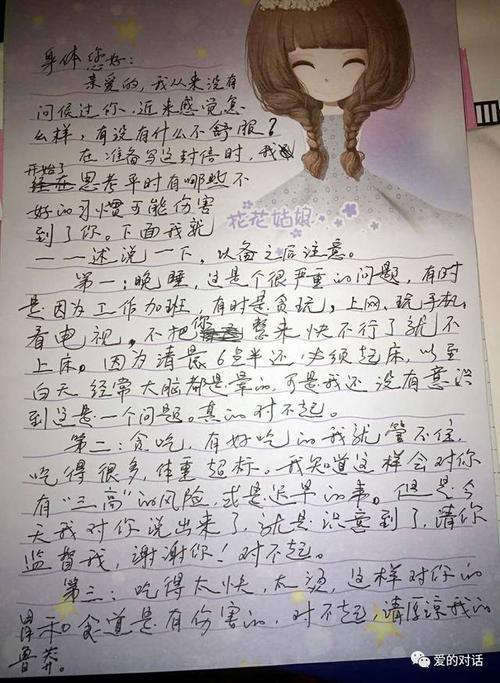 身体您好:
亲爱的,我从来没有
问候过你,近来感觉怎
么样,有没有什么不舒服?
在准备写这封信时,我
开始了
思考平时有哪些不
好的习惯可能伤害
到了你。下面我就
花花姑娘
一一述说一下,以备之后注意。
第一:晚睡,这是个很严重的问题,有时
是因为工作加班,有时是贪玩,上网、玩手机,
看电视,不把你 整来快不行了就不
上床。因为清晨6点半还必须起床,以至
白天经常大脑都是晕的,可是我还没有意识
到这是一个问题。真的对不起。
第二:贪吃,有好吃的我就管不住,
吃得很多,体重超标。我知道这样会对你
有"三高"的风险,或是迟早的事。但是今
天我对你说出来了,就是意到了,请你
监督我,谢谢你!对不起。
第三:吃得太快,太烫,这样对你的
胃和食道是有伤害的,对不起,请原谅我的
鲁莽。
爱的对话